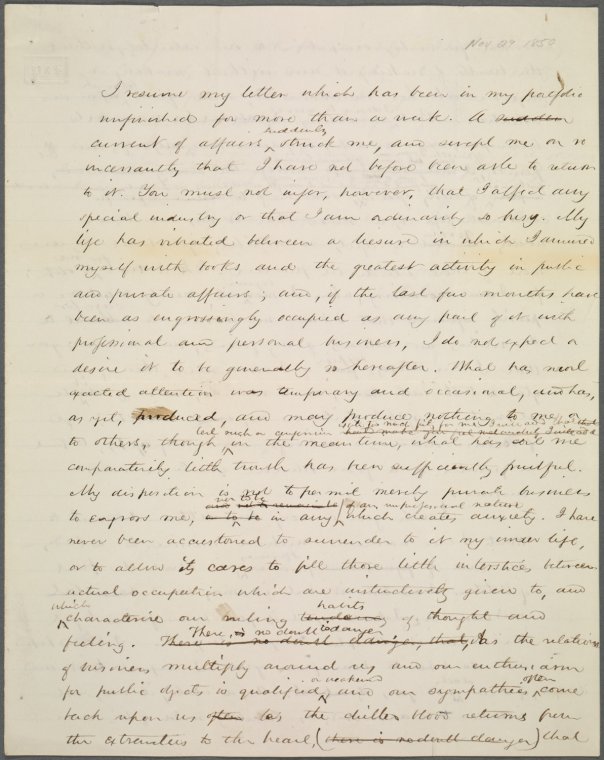 Nov. 29 1850
I resume my letter which has been in my portfolio
unfinished for more than a week. A sudden
suddenly
current of affairs struck me, and swept me on so
incessantly that I have not before been able to return
to it. You must not infer, however, that I affect any
special industry or that I am ordinarily so busy. My
life has vibrated between a leisure in which I amused
myself with books and the greatest activity in public
and private affairs; and, if the last few months have
been as engrossingly occupied as any part of it with
professional and personal business, I do not expect or
desire it to be generally so hereafter. What has most
exacted attention was temporary and occasional, and has,
as yet, produced and may produce nothing to me or
to others, though in the meantime, what has set me
comparatively little trouble has been sufficiently fruitful.
My disposition is not to permit merely private business
nor to be of an unprofessional nature
to engross me, or to be in any which creates anxiety. I have
never been accustomed to surrender to it my inner life,
or to allow its cares to fill those little interstices between
actual occupation which are instinctively given to, and
which habits
characterize our ruling tendencies of thought and
There is no doubt danger
feeling. There is no doubt danger, that, as the relations
of business multiply around us and our enthusiasm
or weakened often
for public objects is qualified and our sympathies come
back upon us often as the duller blood returns from
the extremities to the heart, (there is no doubt danger) that